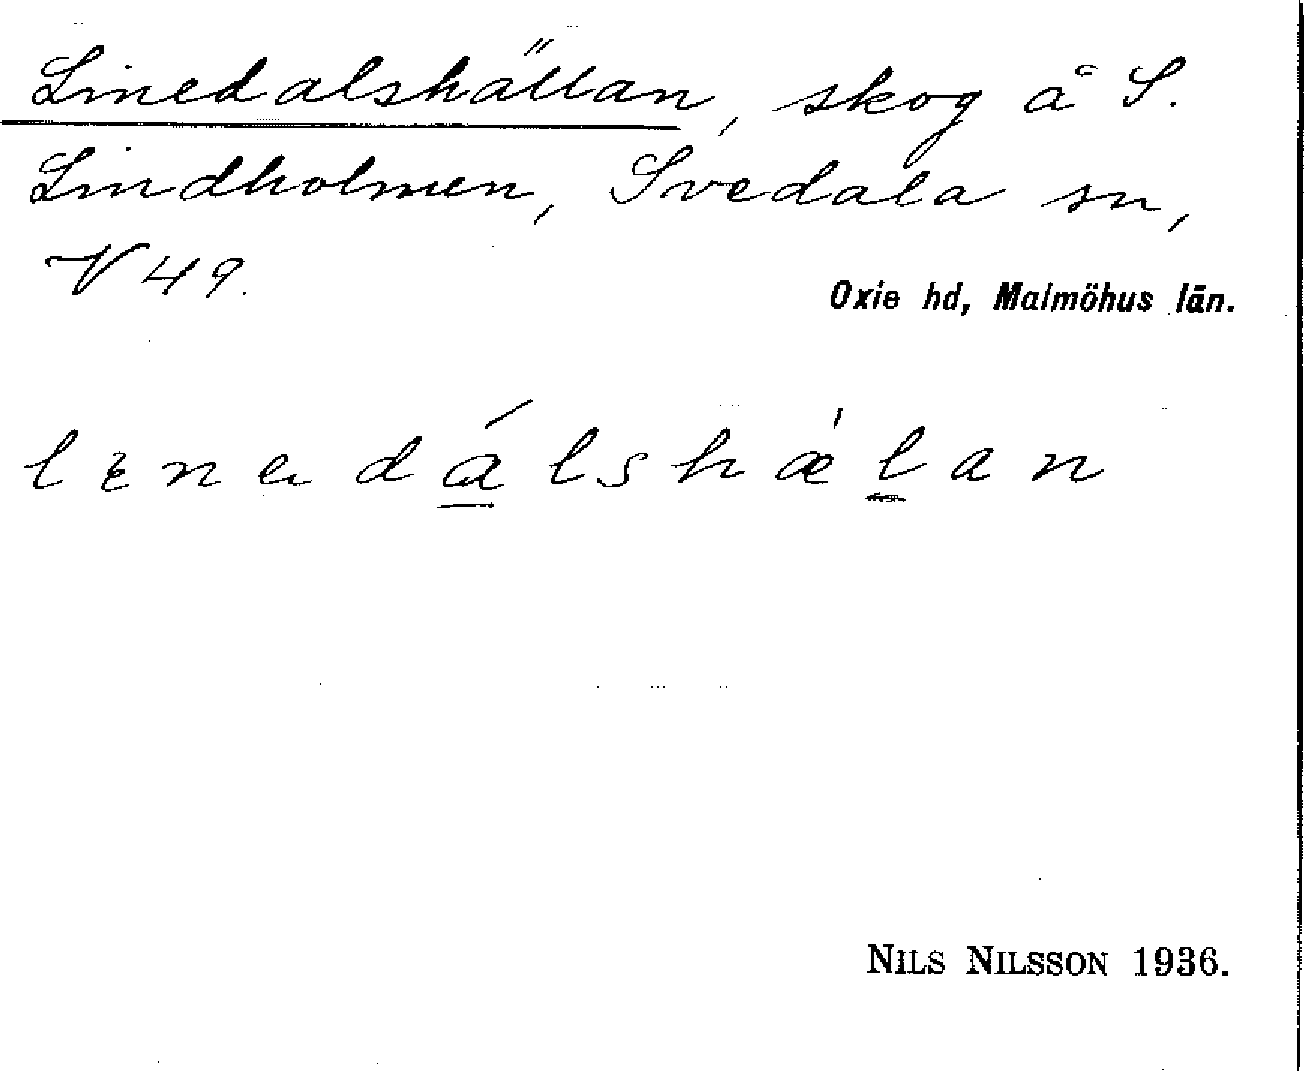 Linedalshällan, skog å S.
Lindholmen, Svedala sn,
V 49.
Oxie hd, Malmöhus län.
NILS NILSSON 1936.